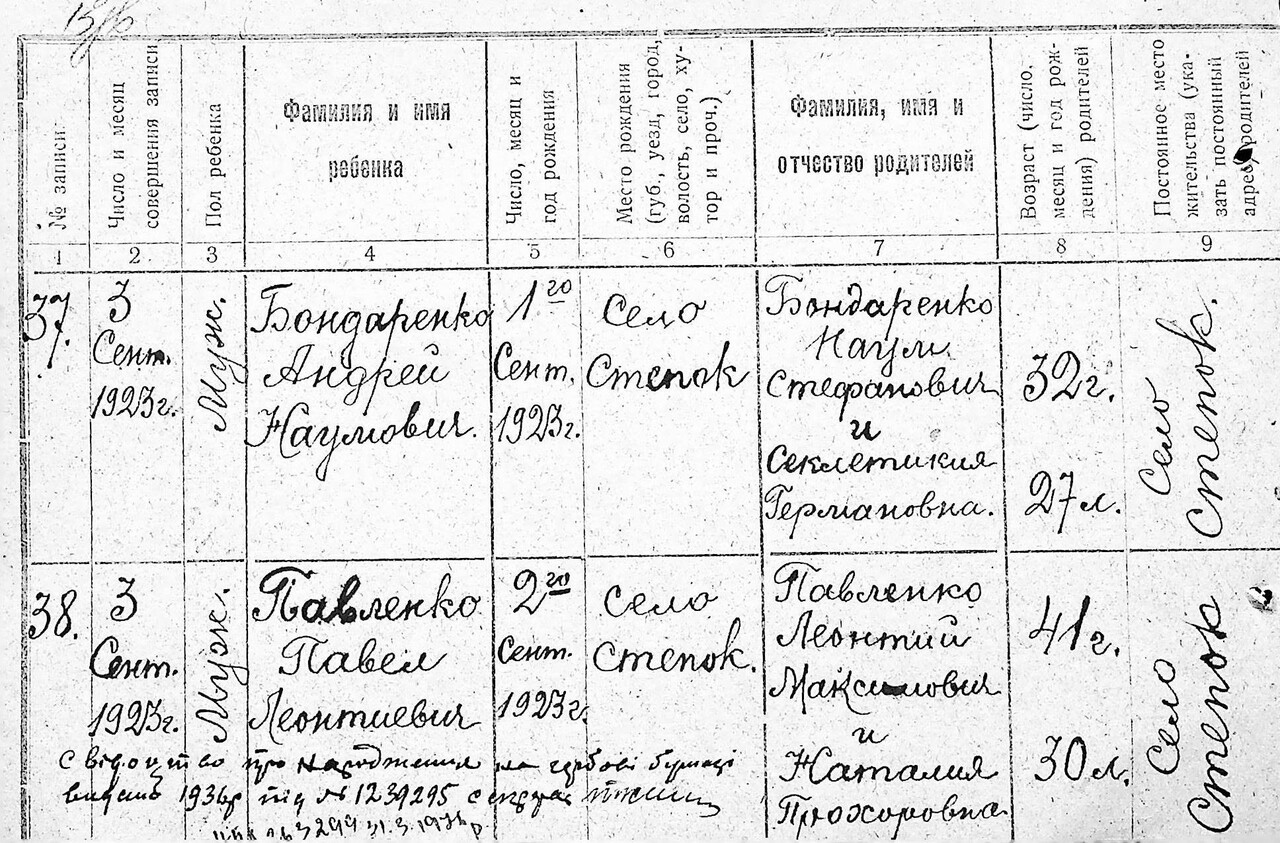 № записи
Число и месяц
совершения записи
Пол ребенка
Фамилия и имя
ребенка
Число, месяц и
год рождения
Место рождения
(губ., уезд, город,
волость, село, ху-
тор и проч.)
Фамилия, имя и
отчество родителей
Возраст (число,
месяц и год рож-
дения) родителей
Постоянное место
жительства (ука-
зать постоянный
адрес родителей
1
2
3
4
5
6
7
8
9
37.
3
Сент.
1923г.
Муж.
Бондаренко
Андрей
Наумович.
1го
Сент.
1923г.
Село
Степок
Бондаренко
Наум
Стефанович
и
Секлетикия
Германовна.
32г.
27л.
Село
Степок.
38.
3
Сент.
1923г.
Муж.
Павленко
Павел
Леонтиевич
2го
Сент.
1923г.
Село
Степок.
Павленко
Леонтий
Максимович
и
Наталия
Прохоровна.
41г.
30л.
Село
Степок
свідоцтво про народження на гербові бумаці
1936р під №1239295
3299 31.3.1936р